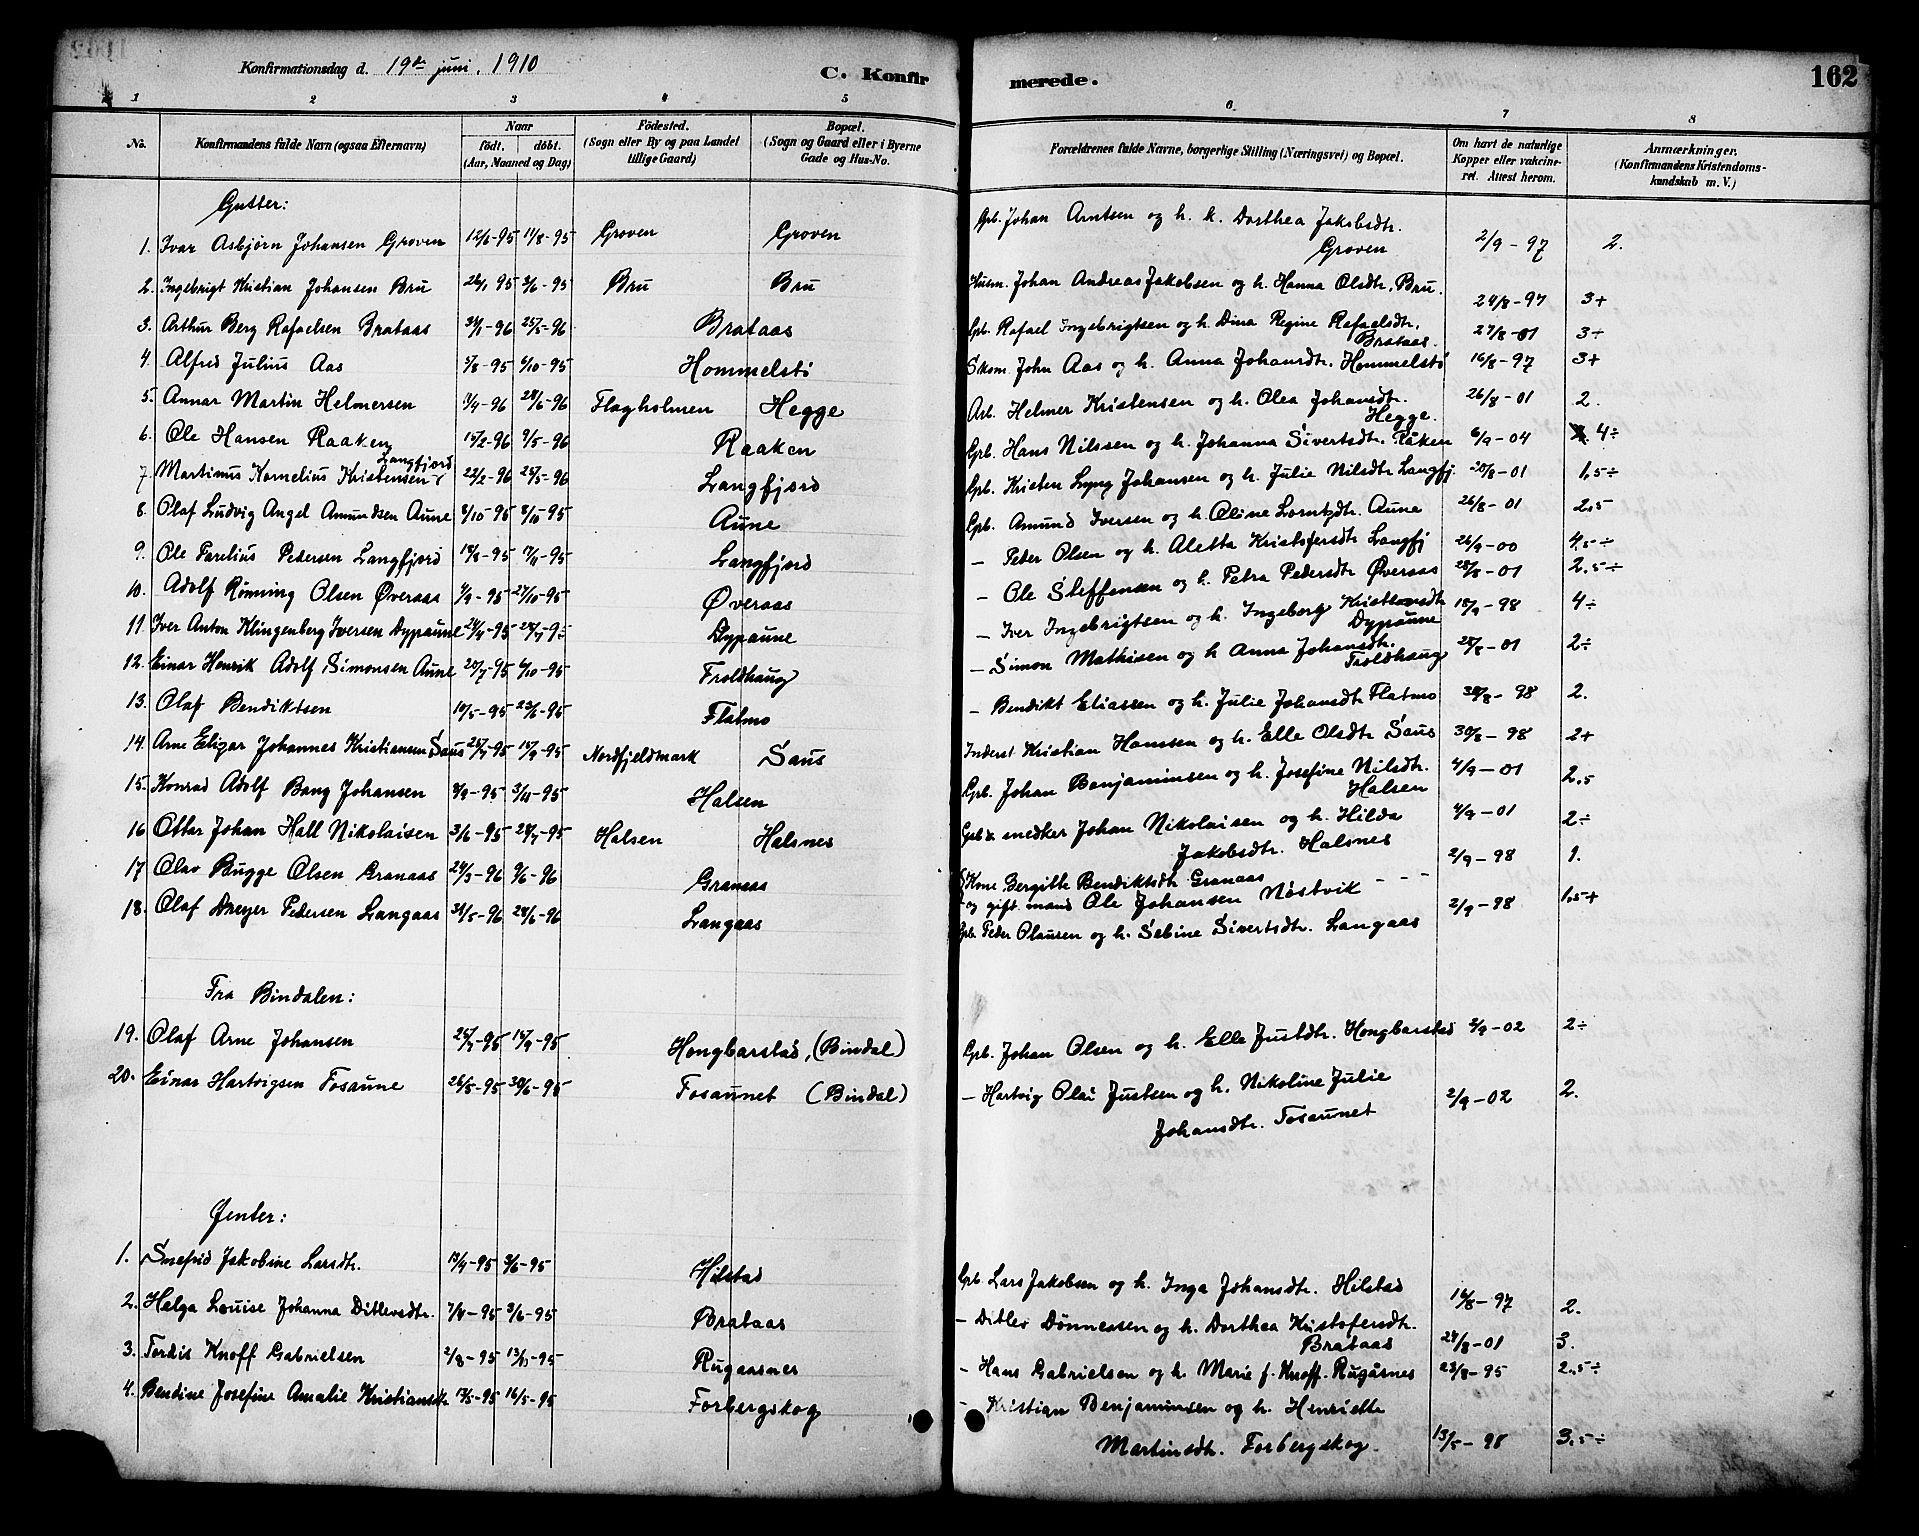 Konfirmationsdag d. 19de juni, 1910
C. Konfir merede.
162
1 2 3 4 5 6 7 8
No.
Konfirmandens fulde Navn (ogsaa Efternavn)
Naar
födt. döbt.
(Aar, Maaned og Dag)
Födested.
(Sogn eller By og paa Landet
tillige Gaard)
Bopæl.
(Sogn og Gaard eller i Byerne
Gade og Hus-No.
Forældrenes fulde Navne, borgerlige Stilling (Næringsvei) og Bopæl.
Om havt de naturlige
Kopper eller vakcine-
ret. Attest herom.
Anmærkninger.
(Konfirmandens Kristendoms-
kundskab m. V.)
Gutter:
1. Ivar Asbjørn Johansen Groven 12/6-95 11/8-95 Groven Groven Grb. Johan Arntsen og h. k. Dorthea Jakobsdtr. Groven 2/9-97 2.
2. Ingebrigt Kristian Johansen Bru Bru Bru Husm. Johan Andreas Jakobsen og h. Hanna Olsdtr. Bru. 24/8-97 3+
3. Arthur Berg Rafaelsen Brataas 25/5-96 Brataas Grb. Rafael Ingebrigtsen og h. Dina Regine Rafaelsdtr. Brataas. 27/8-01 3÷
4. Alfred Julius Aas 5/8-95 6/10-95 Hommelstö Skom. John Aas og h. Anna Johansdtr. Hommelstö 16/8-97 3+
5. Annar Martin Helmersen 28/6-96 Flagholmen Hegge Arb. Helmer Kristensen og h. Olea Johansdtr. Hegge. 26/8-01 2.
6. Ole Hansen Raaken 9/5-96 Raaken Grb. Hans Nilssen og h. Johanna Sivertsdtr. Råken 6/9-04 4÷
7. Martinus Kornelius Kristensen Langfjord 22/2-96 25/5-96 Langfjord Grb. Kristen Lyng Johansen og h. Julie Nilsdtr Langfj. 20/8-01 1,5÷
8. Olaf Ludvig Angel Amundsen Aune 8/10-95 Aune Grb. Amund Iversen og h. Oline Lorntzdtr. Aune 26/8-01 2.5
9. Ole Parelius Pedersen Langfjord 17/11-95 Langfjord — Peder Olsen og h. Aletta Kristofersdtr Langfj 26/9-00 4,5÷
10. Adolf Rönning Olsen Øveraas 27/10-95 Øveraas — Ole Steffensen og h. Petra Pedersdtr Øveraas 28/8-01 2.5÷
11. Iver Anton Klingenberg Iversen Dypaune 24/4-95 Dypaune — Iver Ingebrigtsen og h. Ingeborg Kristensdtr Dypaune 18/9-98 4÷
12. Einar Henrik Adolf Simonsen Aune 20/7-95 6/10-95 Troldhaug — Simon Mathisen og h Anna Johansdtr. Troldhaug 28/8-01 2÷
13. Olaf Bendiktsen 23/6-95 Flatmo — Bendikt Eliassen og h. Julie Johansdtr Flatmo 30/8-98 2.
14. Arne Eligar Johannes Kristiansen Saus 15/9-95 Nordfjeldmark Saus Inderst Kristian Hanssen og h. Elle Olsdtr Saus 30/8-98 2+
15. Konrad Adolf Bang Johansen 3/11-95 Halsen Grb. Johan Benjaminsen og h. Josefine Nilsdtr. Halsen 4/9-01 2.5
16 Ottar Johan Hall Nikolaisen 3/6-95 28/7-95 Halsen Halsnes Grb & snedker Johan Nikolaisen og h. Hilda Jakobsdtr. Halsnes 4/9-01 2÷
17 Olav Bugge Olsen Granaas 24/3-96 Granaas Kone Bergitte Bendiktsdtr Granaas — — —
og gift mand Ole Johansen Nöstvik 2/9-98 1.
18. Olaf Dreyer Pedersen Langaas 31/5-96 28/6-96 Langaas Grb. Peder Olausen og h. Sabine Sivertsdtr. Langaas 2/9-98 1,5+
Fra Bindalen:
19. Olaf Arne Johansen 15/9-95 Hongbarstad, (Bindal) Grb. Johan Olsen og h. Elle Justdtr. Hongbarstad 2/9-02 2÷
20. Einar Hartvigsen Fosaune 26/5-95 30/6-95 Fosaunet (Bindal) — Hartvig Olai Justsen og h. Nikoline Julie
Johansdtr. Fosaunet 2/9-02 2.
Jenter:
1. Snefrid Jakobine Larsdtr. 3/6-95 Hilstad Grb. Lars Jakobsen og h. Inga Johansdtr. Hilstad 16/8-97 2.
2. Helga Louise Johanna Ditlevsdtr. 7/4-95 3/6-95 Brataas — Ditlev Dönnessen og h. Dorthea Kristofersdtr. Brataas 24/8-01 3.
3. Tordis Knoff Gabrielsen 2/8-95 Rugaasnes — Hans Gabrielsen og h. Marie f. Knoff. Rugåsnes 23/8-95 2.5÷
4. Bendine Josefine Amalie Kristiansdtr 16/5-95 Forbergskog — Kristian Benjaminsen og h. Henriette
Martinsdtr. Forbergskog. 13/5-98 3,5÷